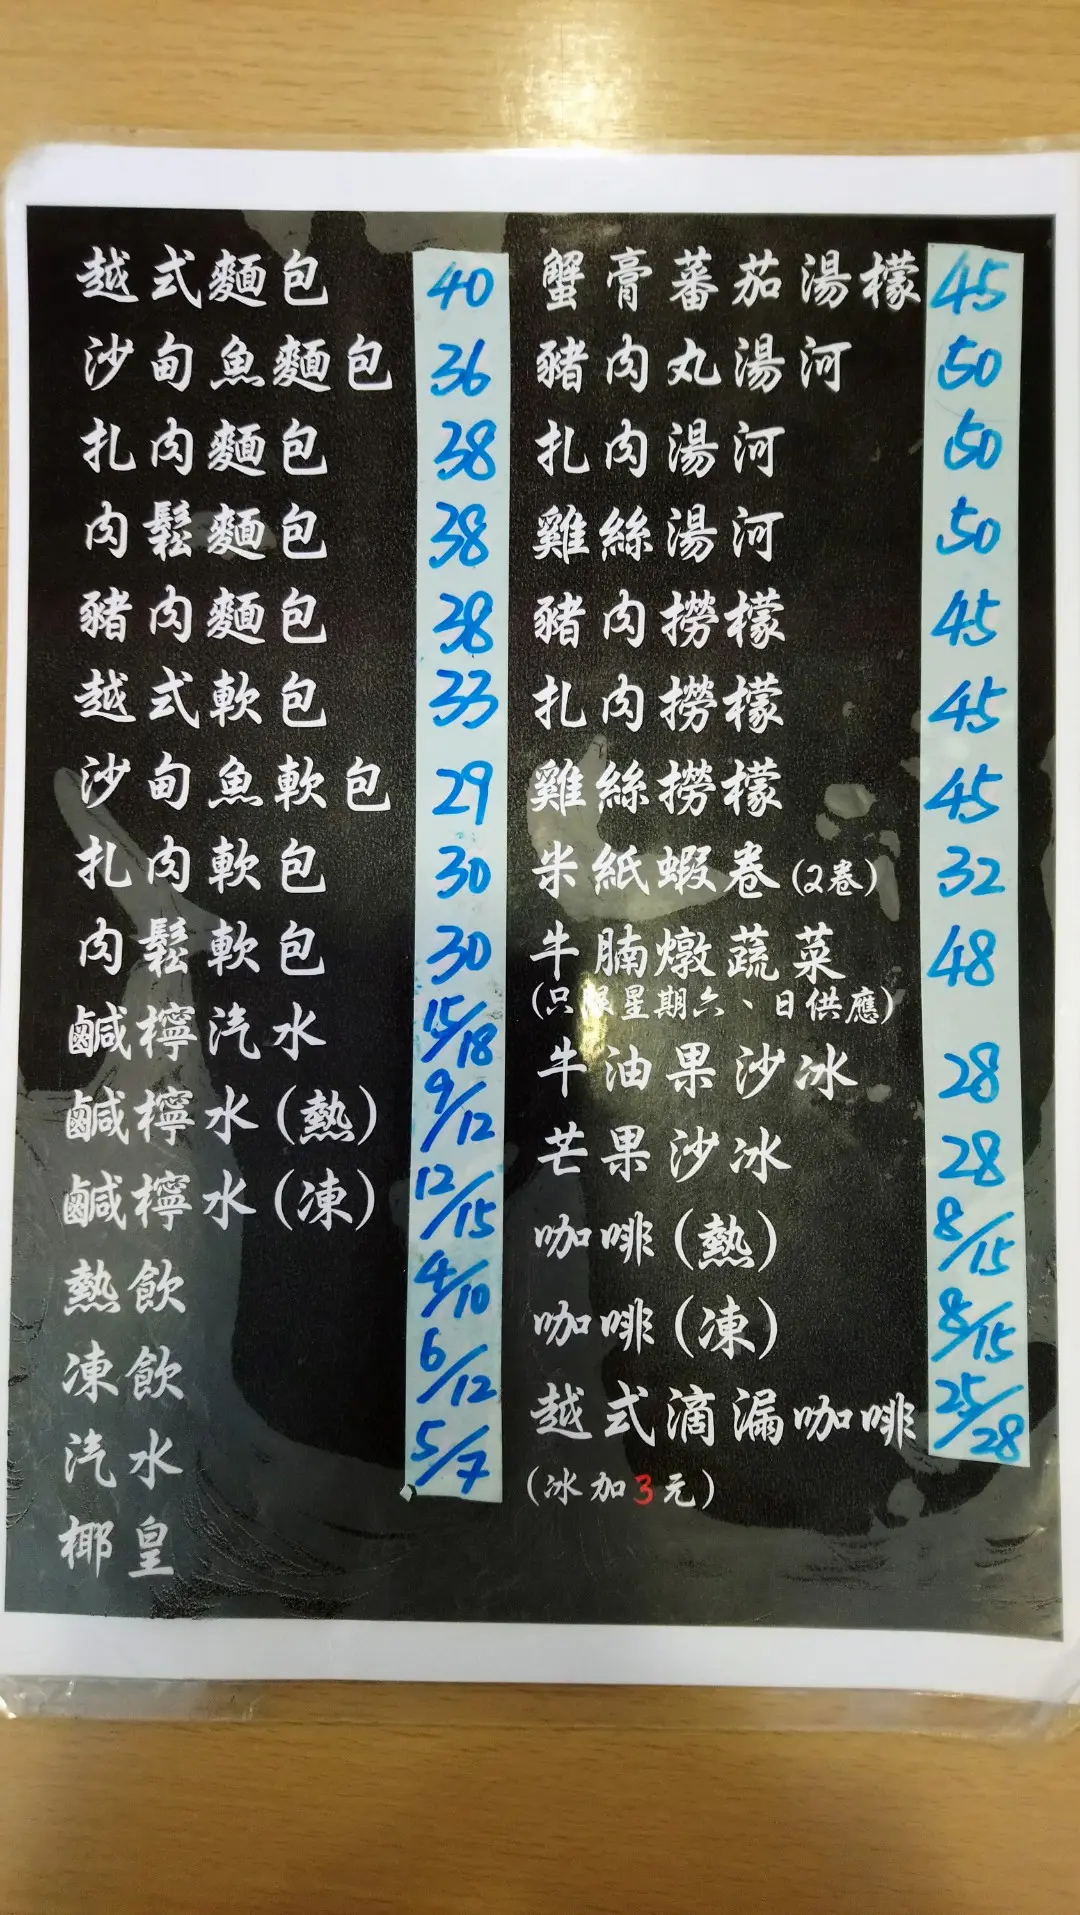 越式麵包 40
沙甸魚麵包 36
扎肉麵包 38
肉鬆麵包 38
豬肉麵包 38
越式軟包 33
沙甸魚軟包 29
扎肉軟包 30
肉鬆軟包 30
鹹檸汽水 15/18
鹹檸水(熱) 9/12
鹹檸水(凍) 12/15
熱飲 4/10
凍飲 6/12
汽水 5/7
椰皇
蟹膏蕃茄湯檬 45
豬肉丸湯河 50
扎肉湯河 50
雞絲湯河 50
豬肉撈檬 45
扎肉撈檬 45
雞絲撈檬 45
米紙蝦卷(2卷) 32
牛腩燉蔬菜 48
(只限星期六、日供應)
牛油果沙冰 28
芒果沙冰 28
咖啡(熱) 8/15
咖啡(凍) 8/15
越式滴漏咖啡 25/28
(冰加3元)